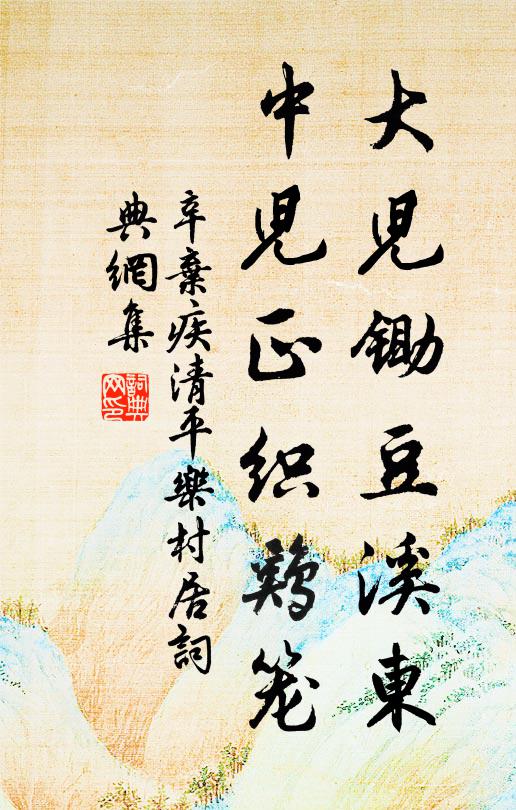 大兒鋤豆溪東
中兒正织鷄笼
辛棄疾清平樂村居詞
典網集
詞典
网印